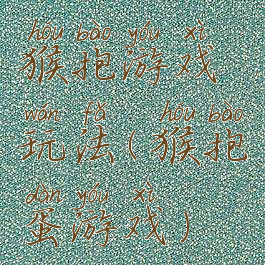 hóu bào yóu xì
猴抱游戏
wán fǎ ( hóu bào
玩法(猴抱
dàn yóu xì )
蛋游戏)